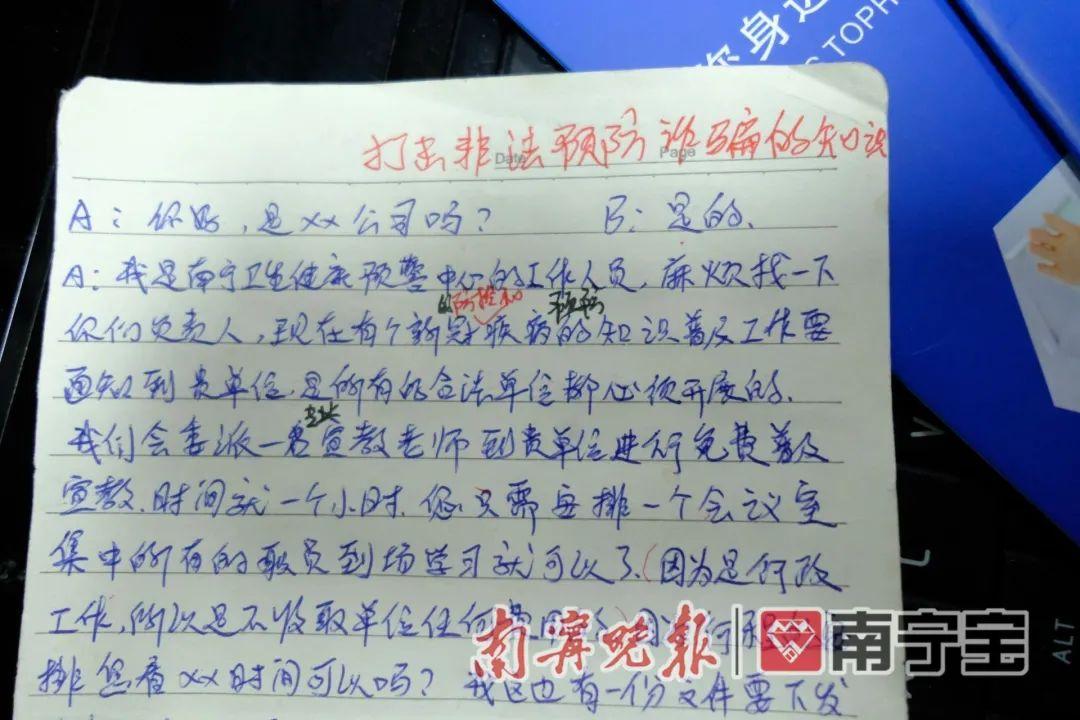 你身边
TOPH
打击非法预防诈骗的知识
Date
Page
A：你好，是xx公司吗？ B：是的、
A：我是南宁卫生健康预警中心的工作人员，麻烦找一下
的防控和 预防
你们负责人，现在有个新冠疾病的知识普及工作要
通知到贵单位，是所有的合法单位都必须开展的、
专业
我们会委派一名宣教老师到贵单位进行免费普及
宣教、时间就一个小时、您只需安排一个会议室
集中所有的职员到场学习就可以了、（因为是行政
工作，所以是不收取单位任何费用
排您看xx时间可以吗？ 我这也有一份文件要下发
南宁晚报
南宁宝
V
L
ALT